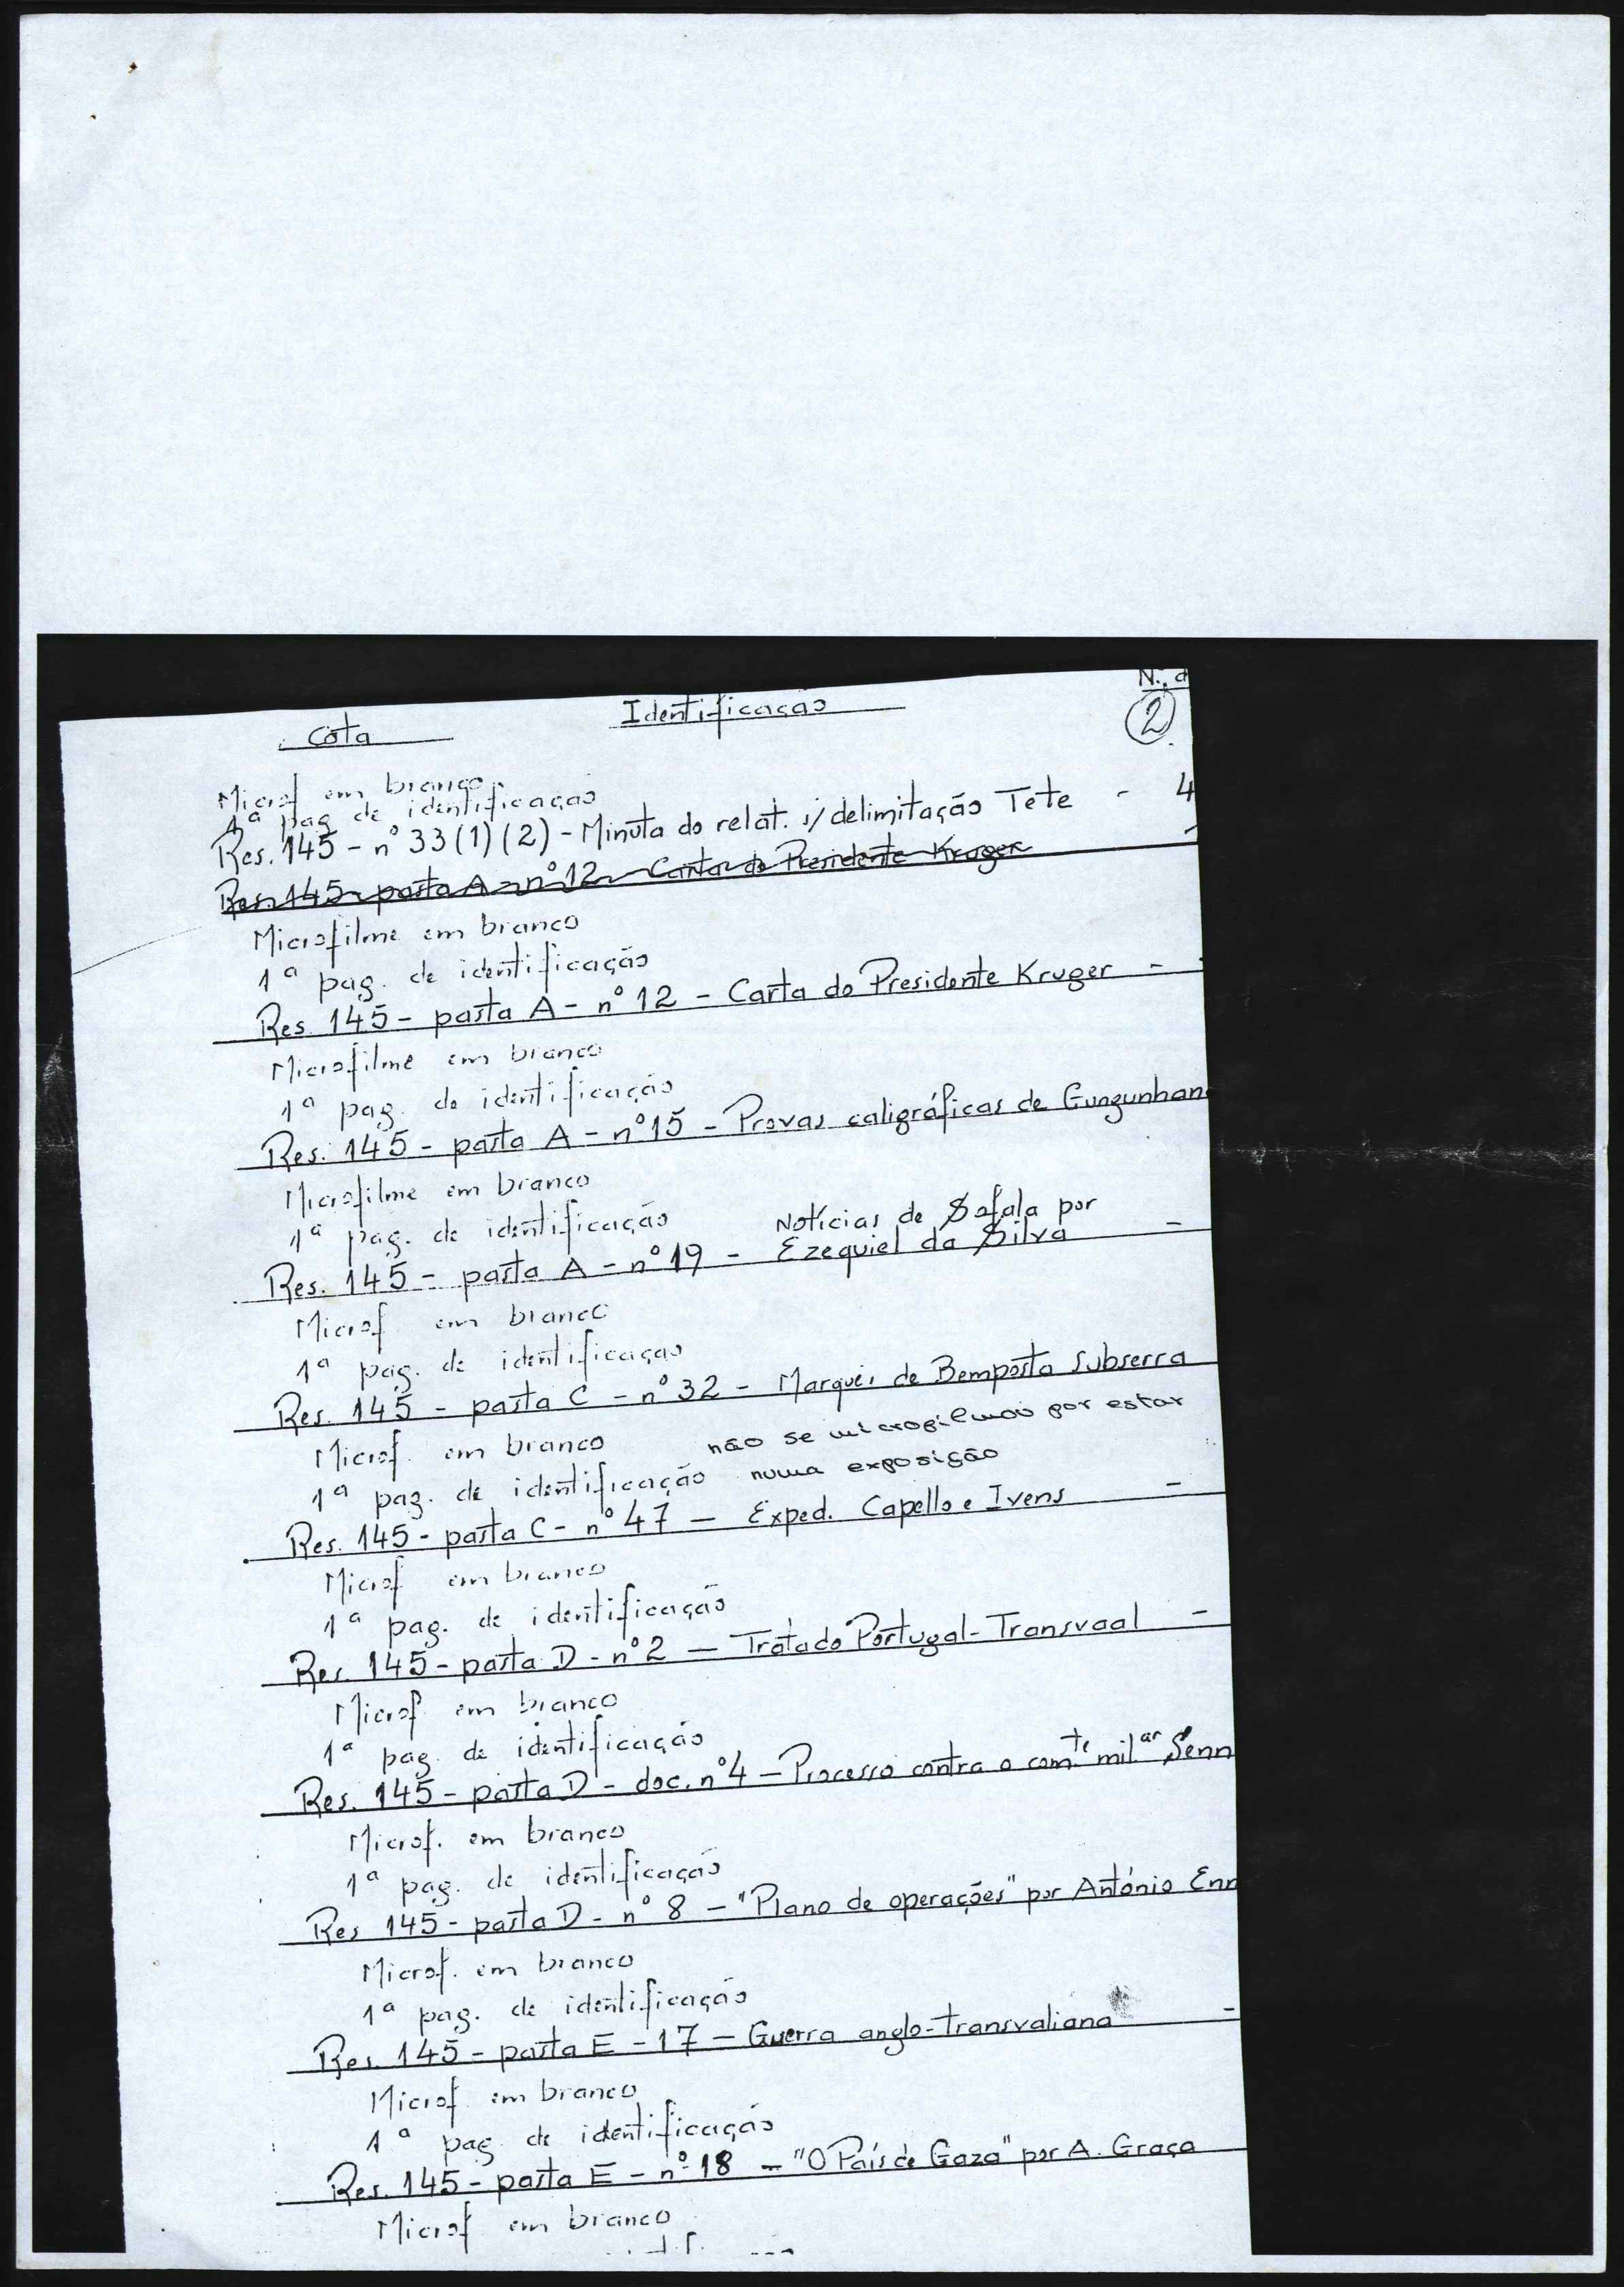 N.º d
Cota Identificação
2
Microf em branco
1ª pag de identificação
Res. 145 - nº 33 (1) (2) - Minuta do relat. s/ delimitação Tete - 4
Res. 145 - pasta A - nº 12 - Carta do Presidente Kruger -
Microfilme em branco
1ª pag. de identificação
Res. 145 - pasta A - nº 12 - Carta do Presidente Kruger -
Microfilme em branco
1ª pag. de identificação
Res. 145 - pasta A - nº 15 - Provas caligráficas de Gungunhan
Microfilme em branco
1ª pag. de identificação
Notícias de Sofala por
Res. 145 - pasta A - nº 19 - Ezequiel da Silva -
Microf em branco
1ª pag. de identificação
Res. 145 - pasta C - nº 32 - Marquês de Bemposta Subserra
Microf. em branco não se microfilmou por estar
1ª pag. de identificação numa exposição
Res. 145 - pasta C - nº 47 - Exped. Capello e Ivens -
Microf em branco
1ª pag. de identificação
Res. 145 - pasta D - nº 2 - Tratado Portugal-Transvaal -
Microf em branco
1ª pag. de identificação
Res. 145 - pasta D - doc. nº 4 - Processo contra o comte milar Senn
Microf. em branco
1ª pag. de identificação
Res 145 - pasta D - nº 8 - "Plano de operações" por António Enn
Microf. em branco
1ª pag. de identificação
Res. 145 - pasta E - 17 - Guerra anglo-transvaliana -
Microf em branco
1ª pag. de identificação
Res. 145 - pasta E - nº 18 - "O País de Gaza" por A. Graça
Microf em branco